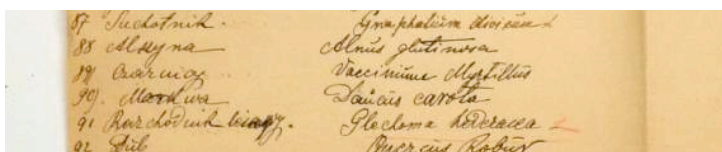 87 Suchotnik. Gnaphalium dioicum L
88 Olszyna Alnus glutinosa
89) Czarniaz Vaccinium Myrtillus
90). Marchwa Daucus carota
91 Rozchodnik Glechoma hederacea L
92 Dub Quercus Robur